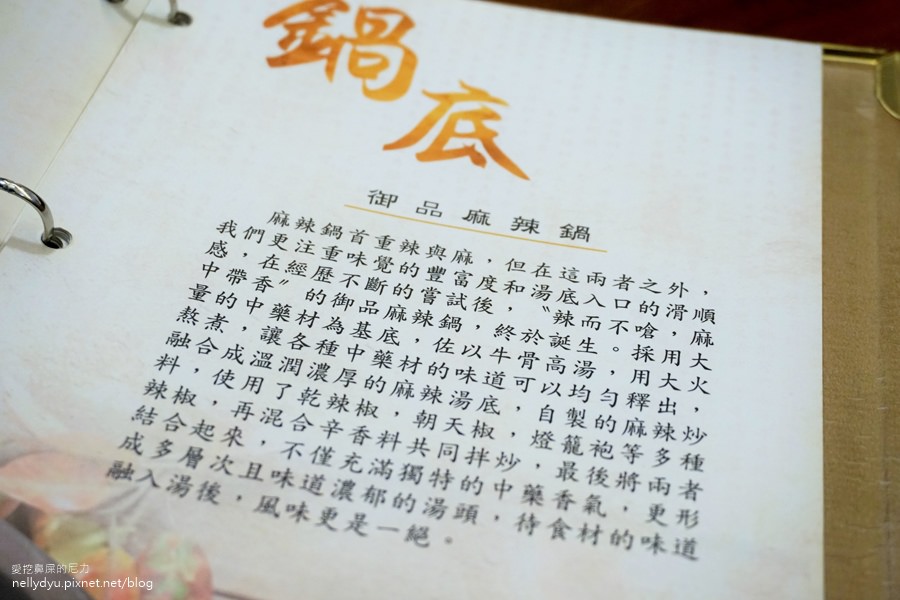 鍋底
御品麻辣鍋
麻辣鍋首重辣與麻，但在這兩者之外，
我們更注重味覺的豐富度和湯底入口的滑順
感，在經歷不斷的嘗試後，〝辣而不嗆，麻
中帶香〞的御品麻辣鍋，終於誕生。採用大
量的中藥材為基底，佐以牛骨高湯，用大火
熬煮，讓各種中藥材的味道可以均勻釋出，
融合成溫潤濃厚的麻辣湯底，自製的麻辣炒
料，使用了乾辣椒，朝天椒，燈籠袍等多種
辣椒，再混合辛香料共同拌炒，最後將兩者
結合起來，不僅充滿獨特的中藥香氣，更形
成多層次且味道濃郁的湯頭，待食材的味道
融入湯後，風味更是一絕。
愛挖鼻屎的尼力
nellydyu.pixnet.net/blog